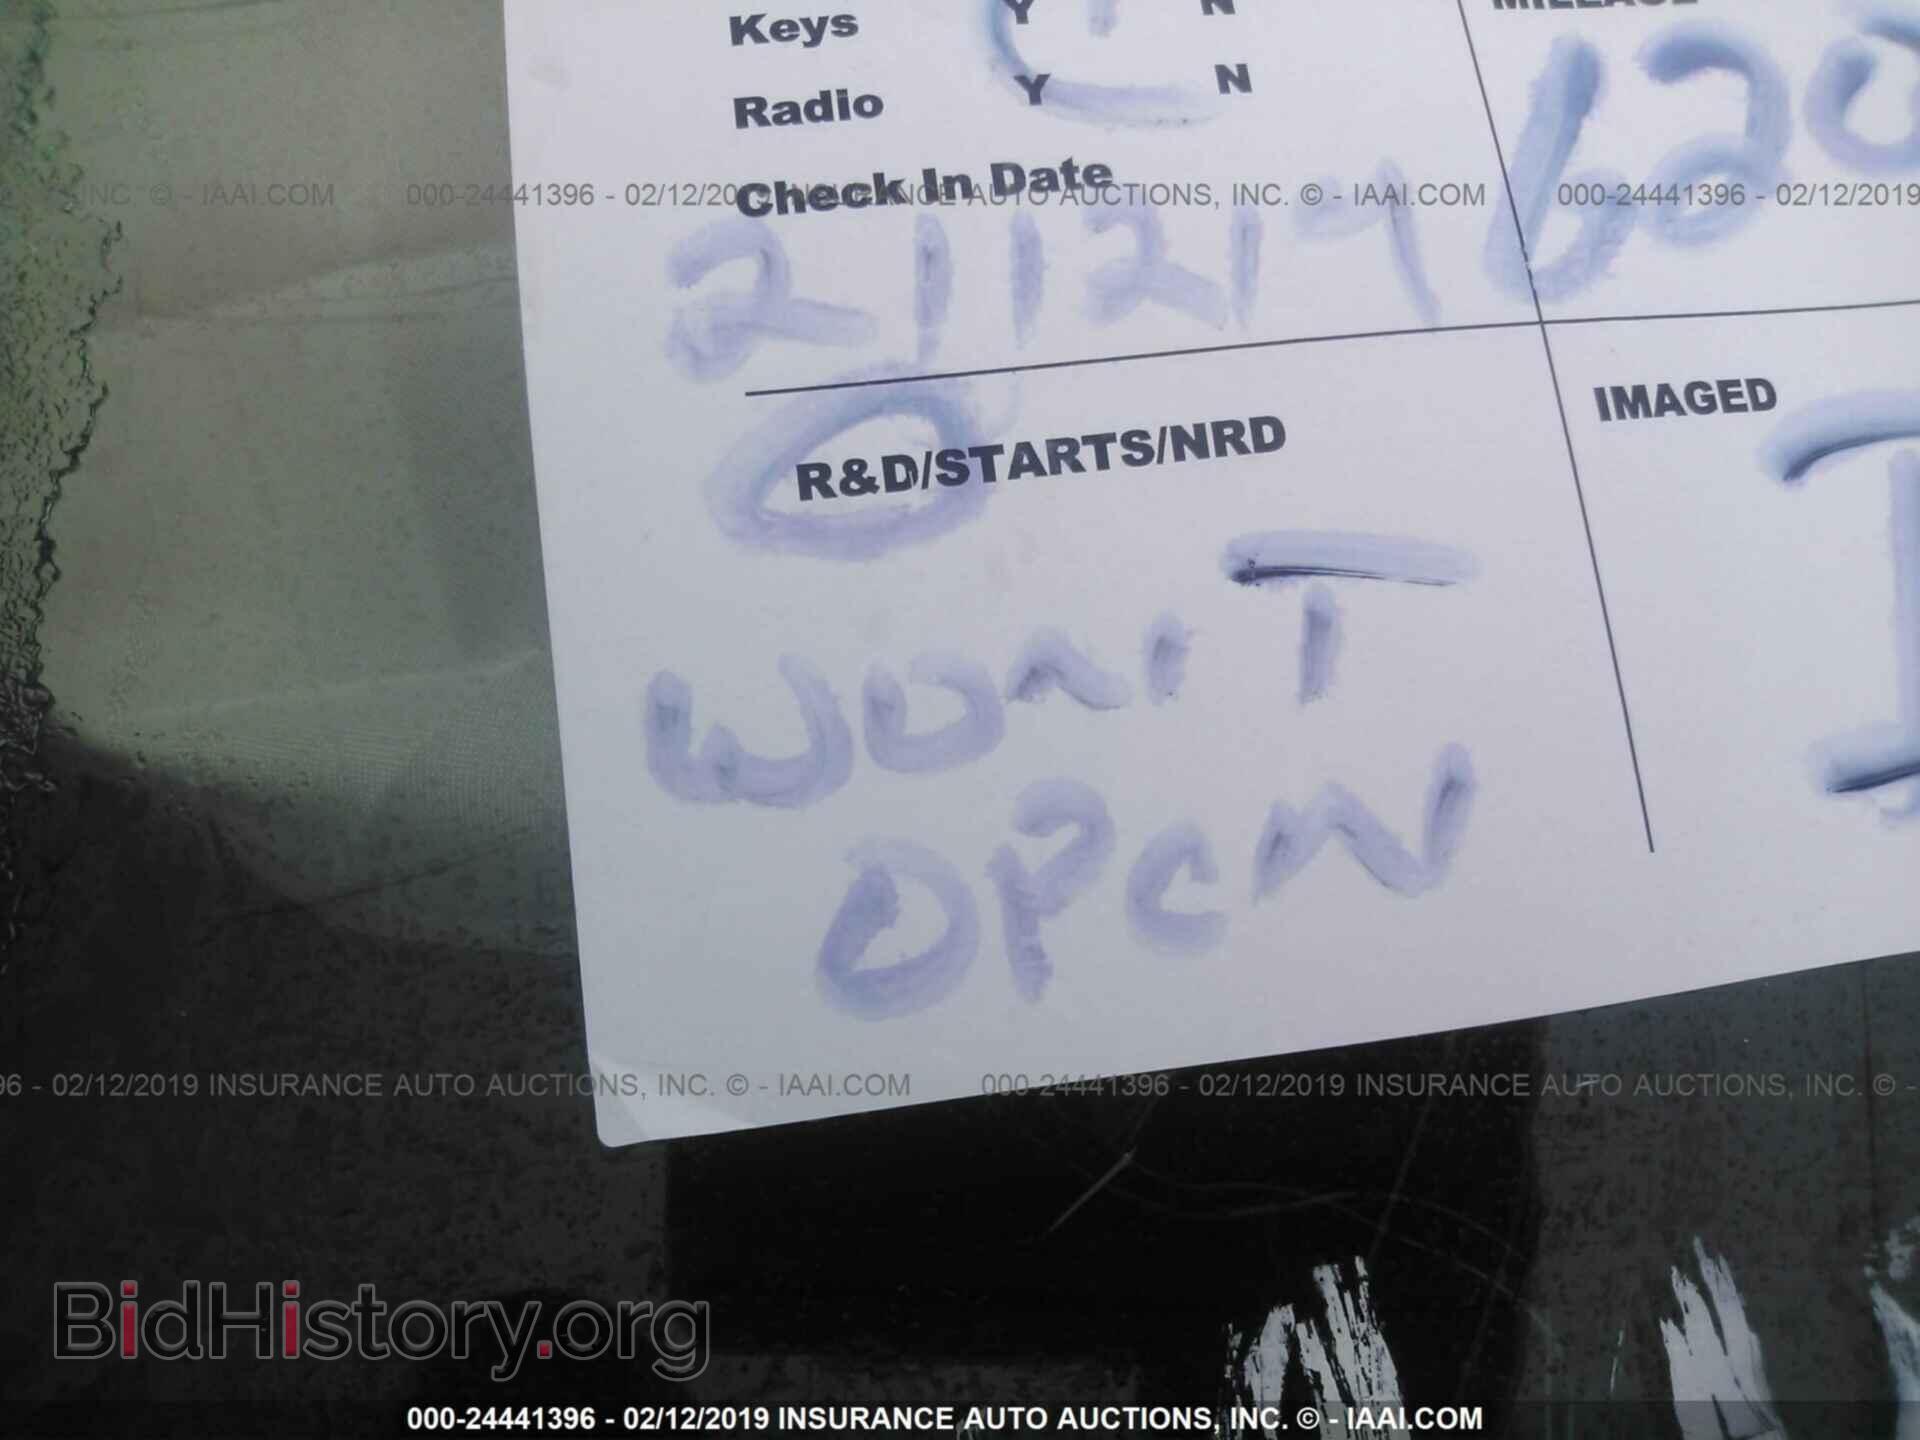 Keys Y N
Radio Y N
Check In Date
2/12/19
620
R&D/STARTS/NRD
IMAGED
WON'T
OPEN
INC. © - IAAI.COM 000-24441396 - 02/12/2019 INSURANCE AUTO AUCTIONS, INC. © - IAAI.COM 000-24441396 - 02/12/2019
96 - 02/12/2019 INSURANCE AUTO AUCTIONS, INC. © - IAAI.COM 000-24441396 - 02/12/2019 INSURANCE AUTO AUCTIONS, INC. © -
BidHistory.org
000-24441396 - 02/12/2019 INSURANCE AUTO AUCTIONS, INC. © - IAAI.COM